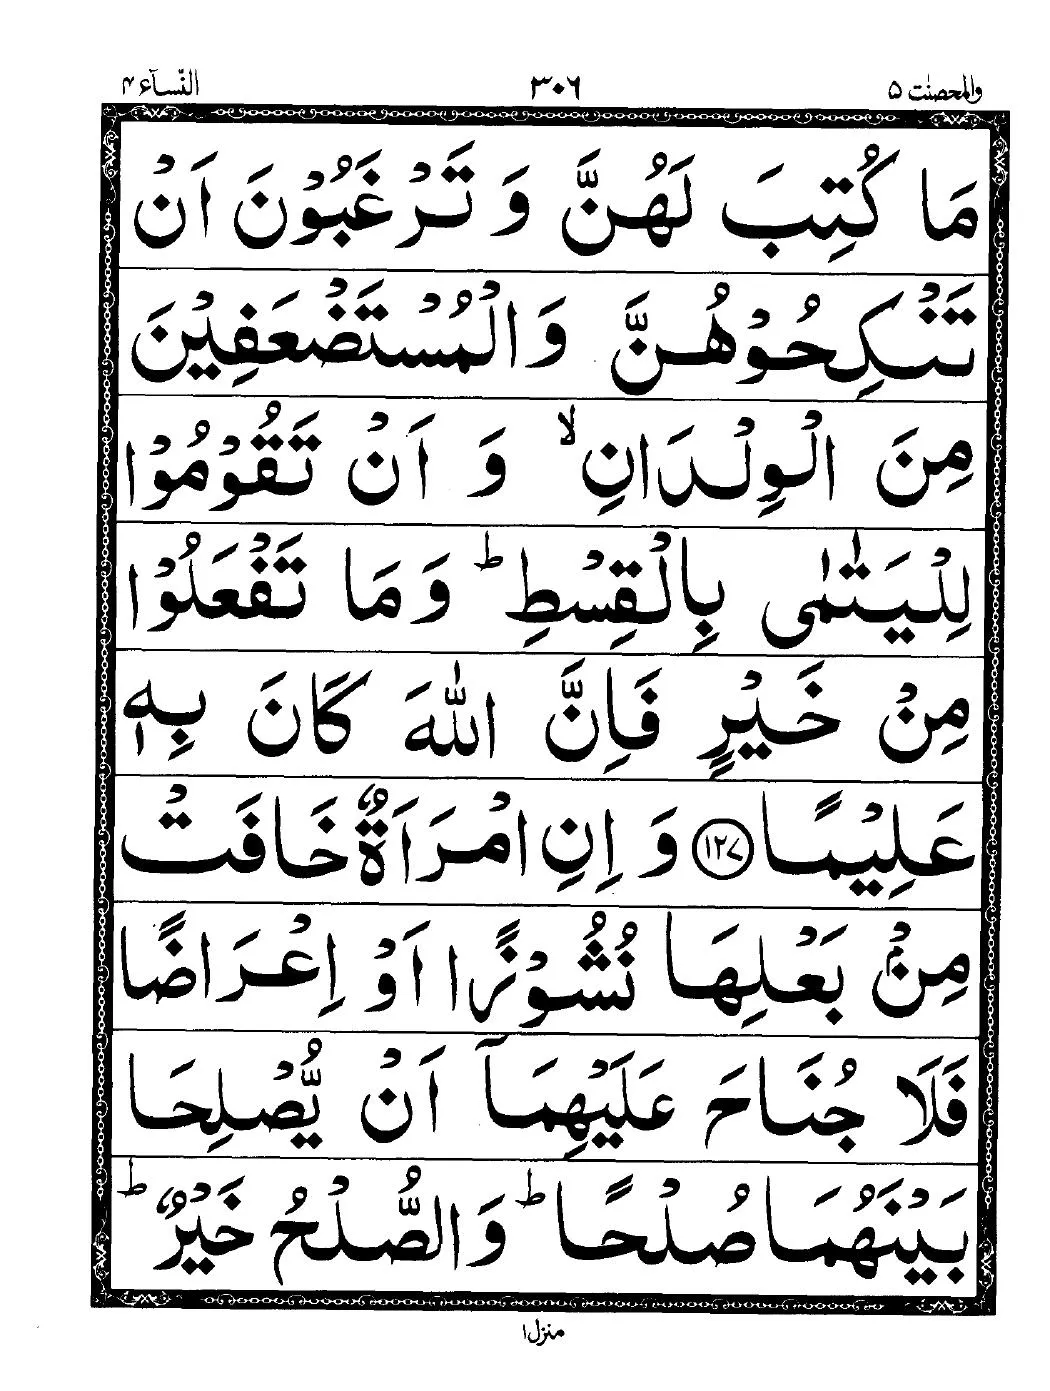 والمحصنٰت ٥ ٣٠٦ النّسآء ٤
مَا كُتِبَ لَهُنَّ وَ تَرْغَبُوْنَ اَنْ
تَنْكِحُوْهُنَّ وَالْمُسْتَضْعَفِيْنَ
مِنَ الْوِلْدَانِ ۙ وَ اَنْ تَقُوْمُوْا
لِلْيَتٰمٰى بِالْقِسْطِ ؕ وَمَا تَفْعَلُوْا
مِنْ خَيْرٍ فَاِنَّ اللّٰهَ كَانَ بِهٖ
عَلِيْمًا ﴿١٢٧﴾ وَ اِنِ امْرَاَةٌ خَافَتْ
مِنْۢ بَعْلِهَا نُشُوْزًا اَوْ اِعْرَاضًا
فَلَا جُنَاحَ عَلَيْهِمَاۤ اَنْ يُّصْلِحَا
بَيْنَهُمَا صُلْحًا ؕ وَالصُّلْحُ خَيْرٌ ؕ
منزل ١